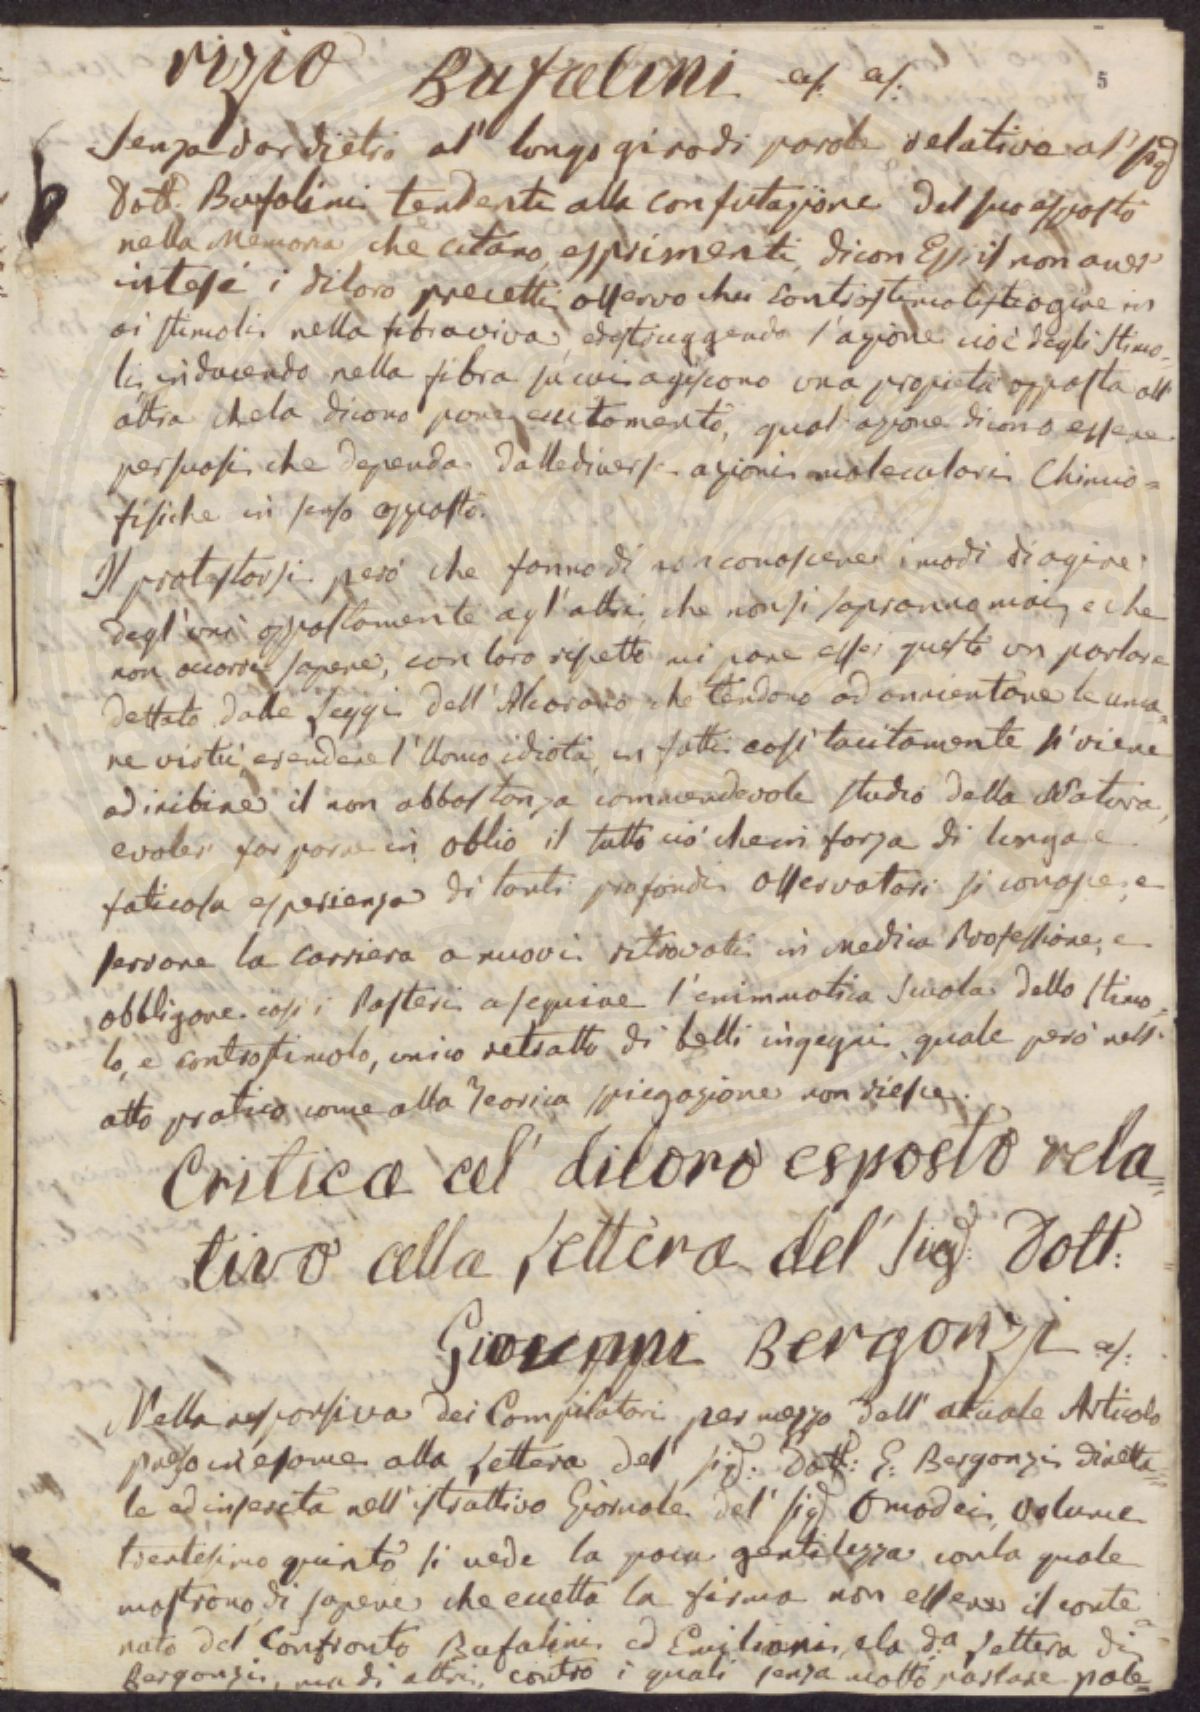 rizio Bufalini es. es.
5
Senza dar dietro al' lungo giro di parole relativo al' Sigr
Dott. Bufalini tendente alla confutazione del suo esposto
nella Memoria che citano, esprimenti, dicon Essi il non aver
intesi i di loro precetti, osservo che i controstimolisti agire in
ai stimoli nella fibra viva, distruggendo l'azione cioè degli stimo-
li, inducendo nella fibra su cui agiscono una propietà opposta all'
altra che la dicono pure eccitamento, qual' azione dicono essere
persuasi che dependa dalle diverse azioni molecolari Chimico=
fisiche in senso opposto.
Il protestarsi però che fanno di non conoscere i modi di agire
degl'uni oppostamente agl'altri, che non si sapranno mai, e che
non occorre sapere, con loro rispetto mi pare esser questo un parlare
dettato dalle Leggi dell'Alcorano che tendono ad annientare le uma=
ne virtù, e rendere l'Uomo idiota, in fatti così tacitamente si viene
ad inibire il non abbastanza commendevole studio della Natura,
e voler far porre in oblio il tutto ciò che in forza di lunga e
faticosa esperienza di tanti profondi Osservatori si conosce, e
serrare la carriera a nuovi ritrovati in Medica Professione, e
obbligare così i Posteri a seguire l'enimmatica Scuola dello stimo=
lo, e controstimolo, unico retratto di belli ingegni, quale però nell'
atto pratico come alla Teorica spiegazione non riesce.
Critica al' di loro esposto rela=
tivo alla Lettera del' Sigr: Dott:
Giovanni Bergonzi es:
Nella responsiva dei Compilatori per mezzo dell'attuale Articolo
preso in esame alla Lettera del' Sigr: Dott: G: Bergonzi diretta=
le ed inserita nell'istruttivo Giornale del' Sigr Omodei, volume
trentesimo quinto si vede la poca gentilezza con la quale
mostrono di sapere che eccetto la firma non essere il conte=
nuto del Confronto Bufalini ed Emiliani, e la da Lettera di
Bergonzi, ma di altri, contro i quali senza molto parlare pale=